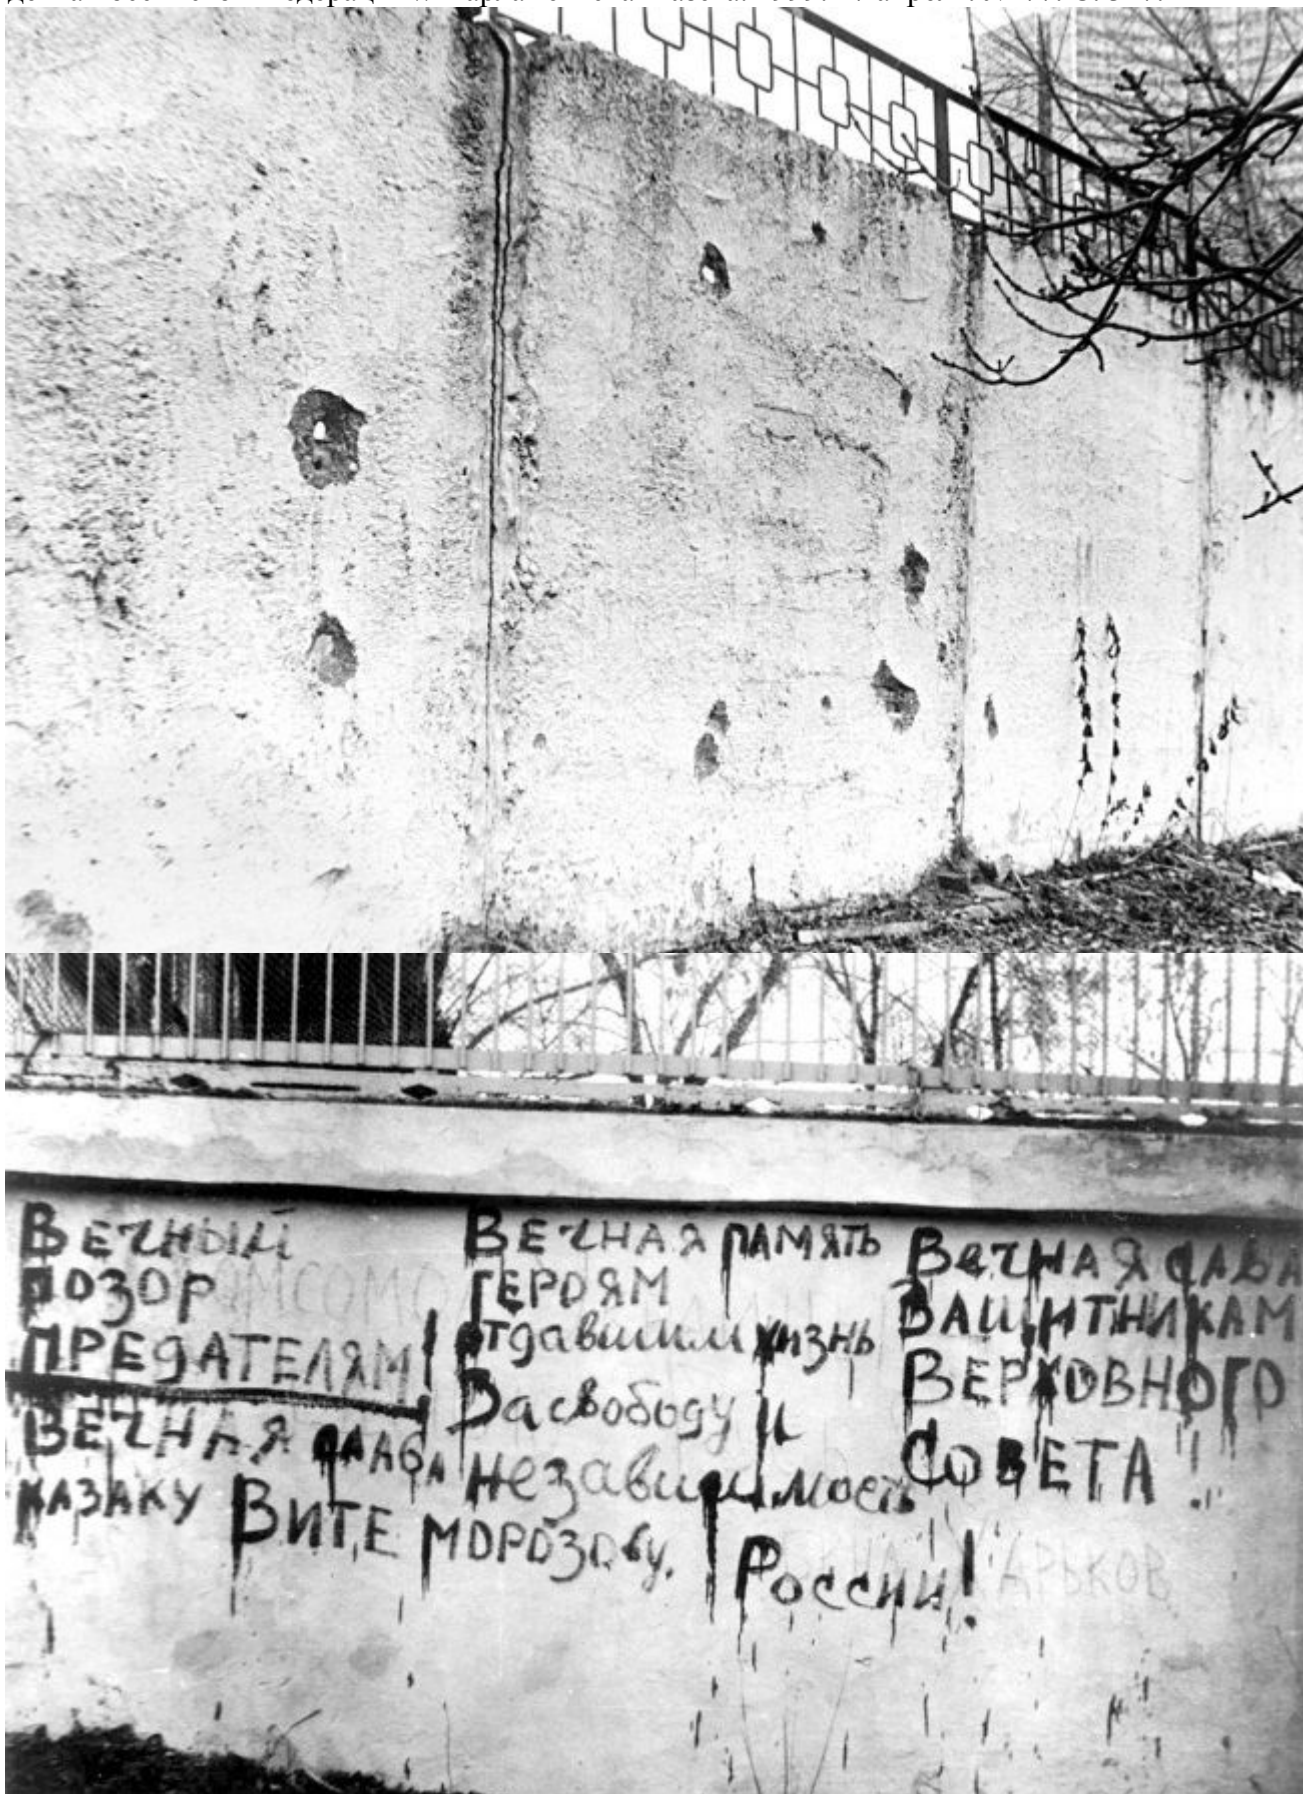 ВЕЧНЫЙ
ПОЗОР
ПРЕДАТЕЛЯМ!
ВЕЧНАЯ СЛАВА
КАЗАКУ ВИТЕ МОРОЗОВУ.
ВЕЧНАЯ ПАМЯТЬ
ГЕРОЯМ
отдавшим жизнь
За свободу и
независимость
России!
ВЕЧНАЯ СЛАВА
ЗАЩИТНИКАМ
ВЕРХОВНОГО
СОВЕТА!
АРЬКОВ